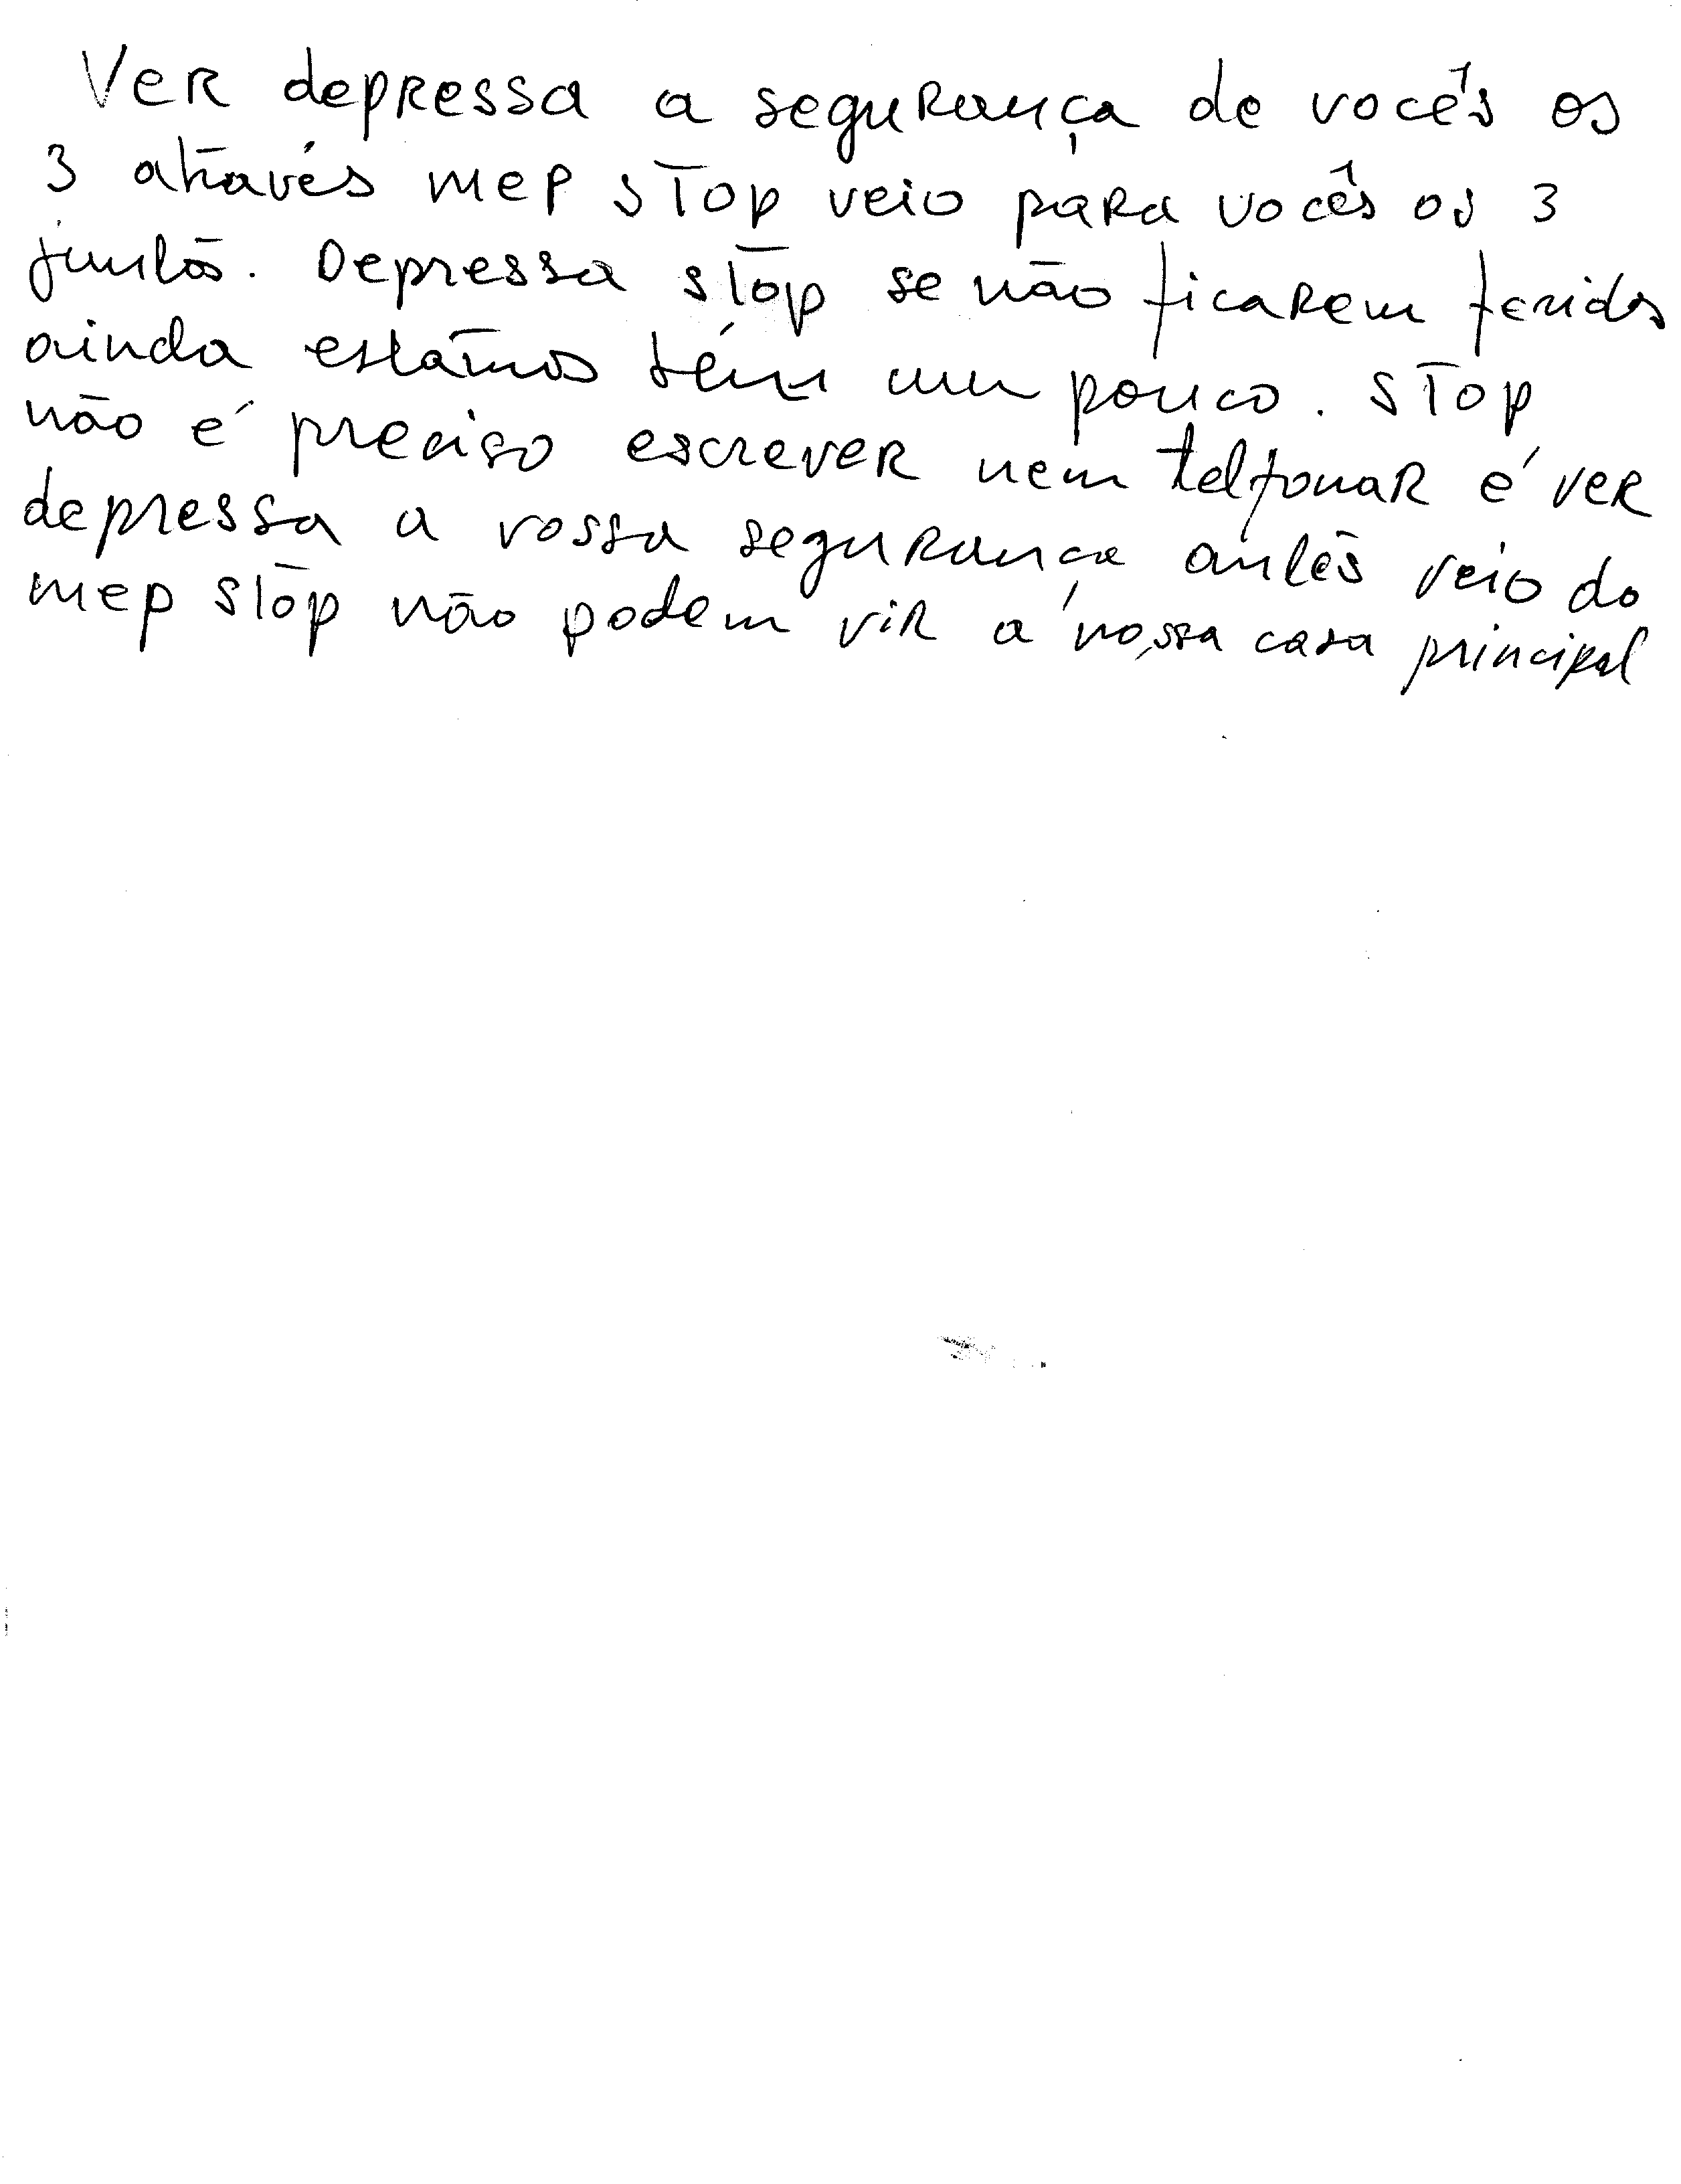 Ver depressa a segurança de vocês os
3 através mep stop veio para vocês os 3
juntos. Depressa stop se não ficarem feridos
ainda estamos têm um pouco. Stop
não é preciso escrever nem telfonar é ver
depressa a vossa segurança antes veio do
mep stop não podem vir á nossa casa principal